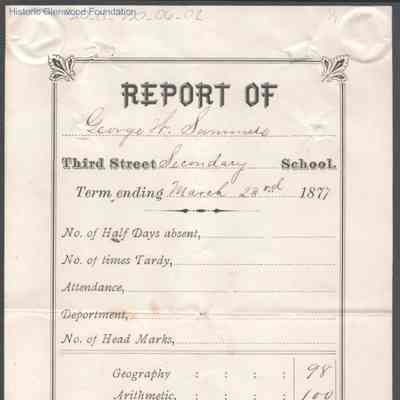 Historic Glenwood Foundation
REPORT OF
George W. Summers
Third Street Secondary School.
Term ending March 23rd 1877
No. of Half Days absent,
No. of times Tardy,
Attendance,
Deportment,
No. of Head Marks,
Geography : : : : 98
Arithmetic, : : : : 100